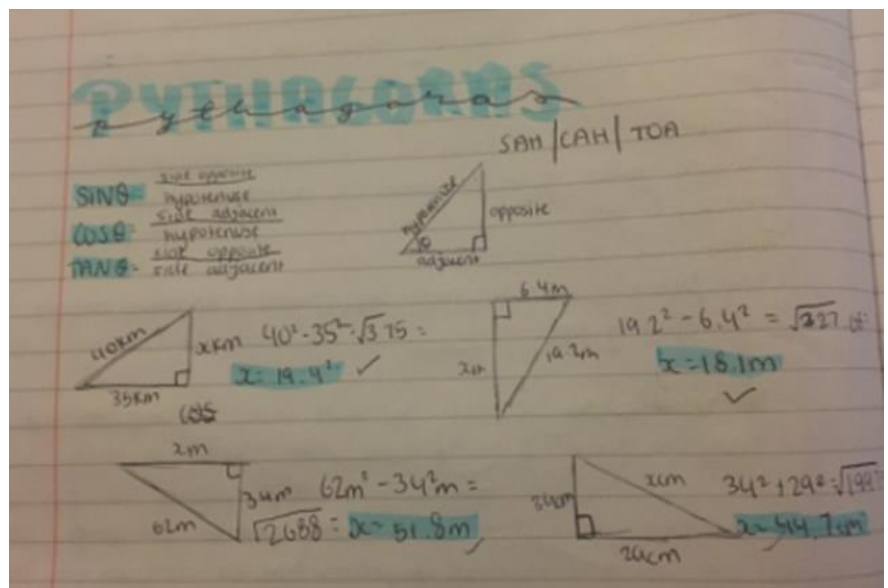 PYTHAGORAS
pythagoras
SAH/CAH/TOA
SINθ= side opposite
hypotenuse
COSθ= side adjacent
hypotenuse
TANθ= side opposite
side adjacent
hypotenuse
opposite
θ
adjacent
40km
xkm
35km
40² - 35² = √375 =
x = 19.4²
6.4m
xm
19.2m
19.2² - 6.4² = √327
x = 18.1m
xm
34m
62m
62m² - 34²m =
√2688 = x = 51.8m
34cm
xcm
29cm
34² + 29² = √1997
x = 44.7cm